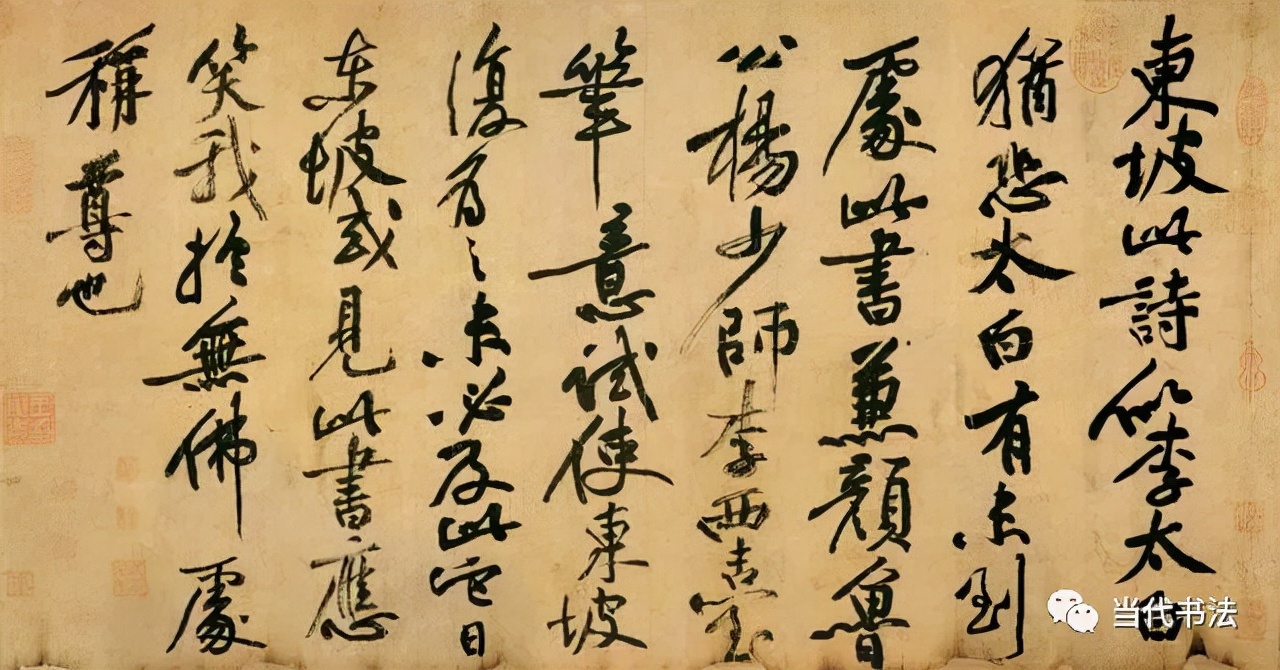 東坡此詩似李太白
猶恐太白有未到
處此書兼顏魯
公楊少師李西臺
筆意試使東坡
復為之未必及此它日
東坡或見此書應
笑我於無佛處
稱尊也
当代书法